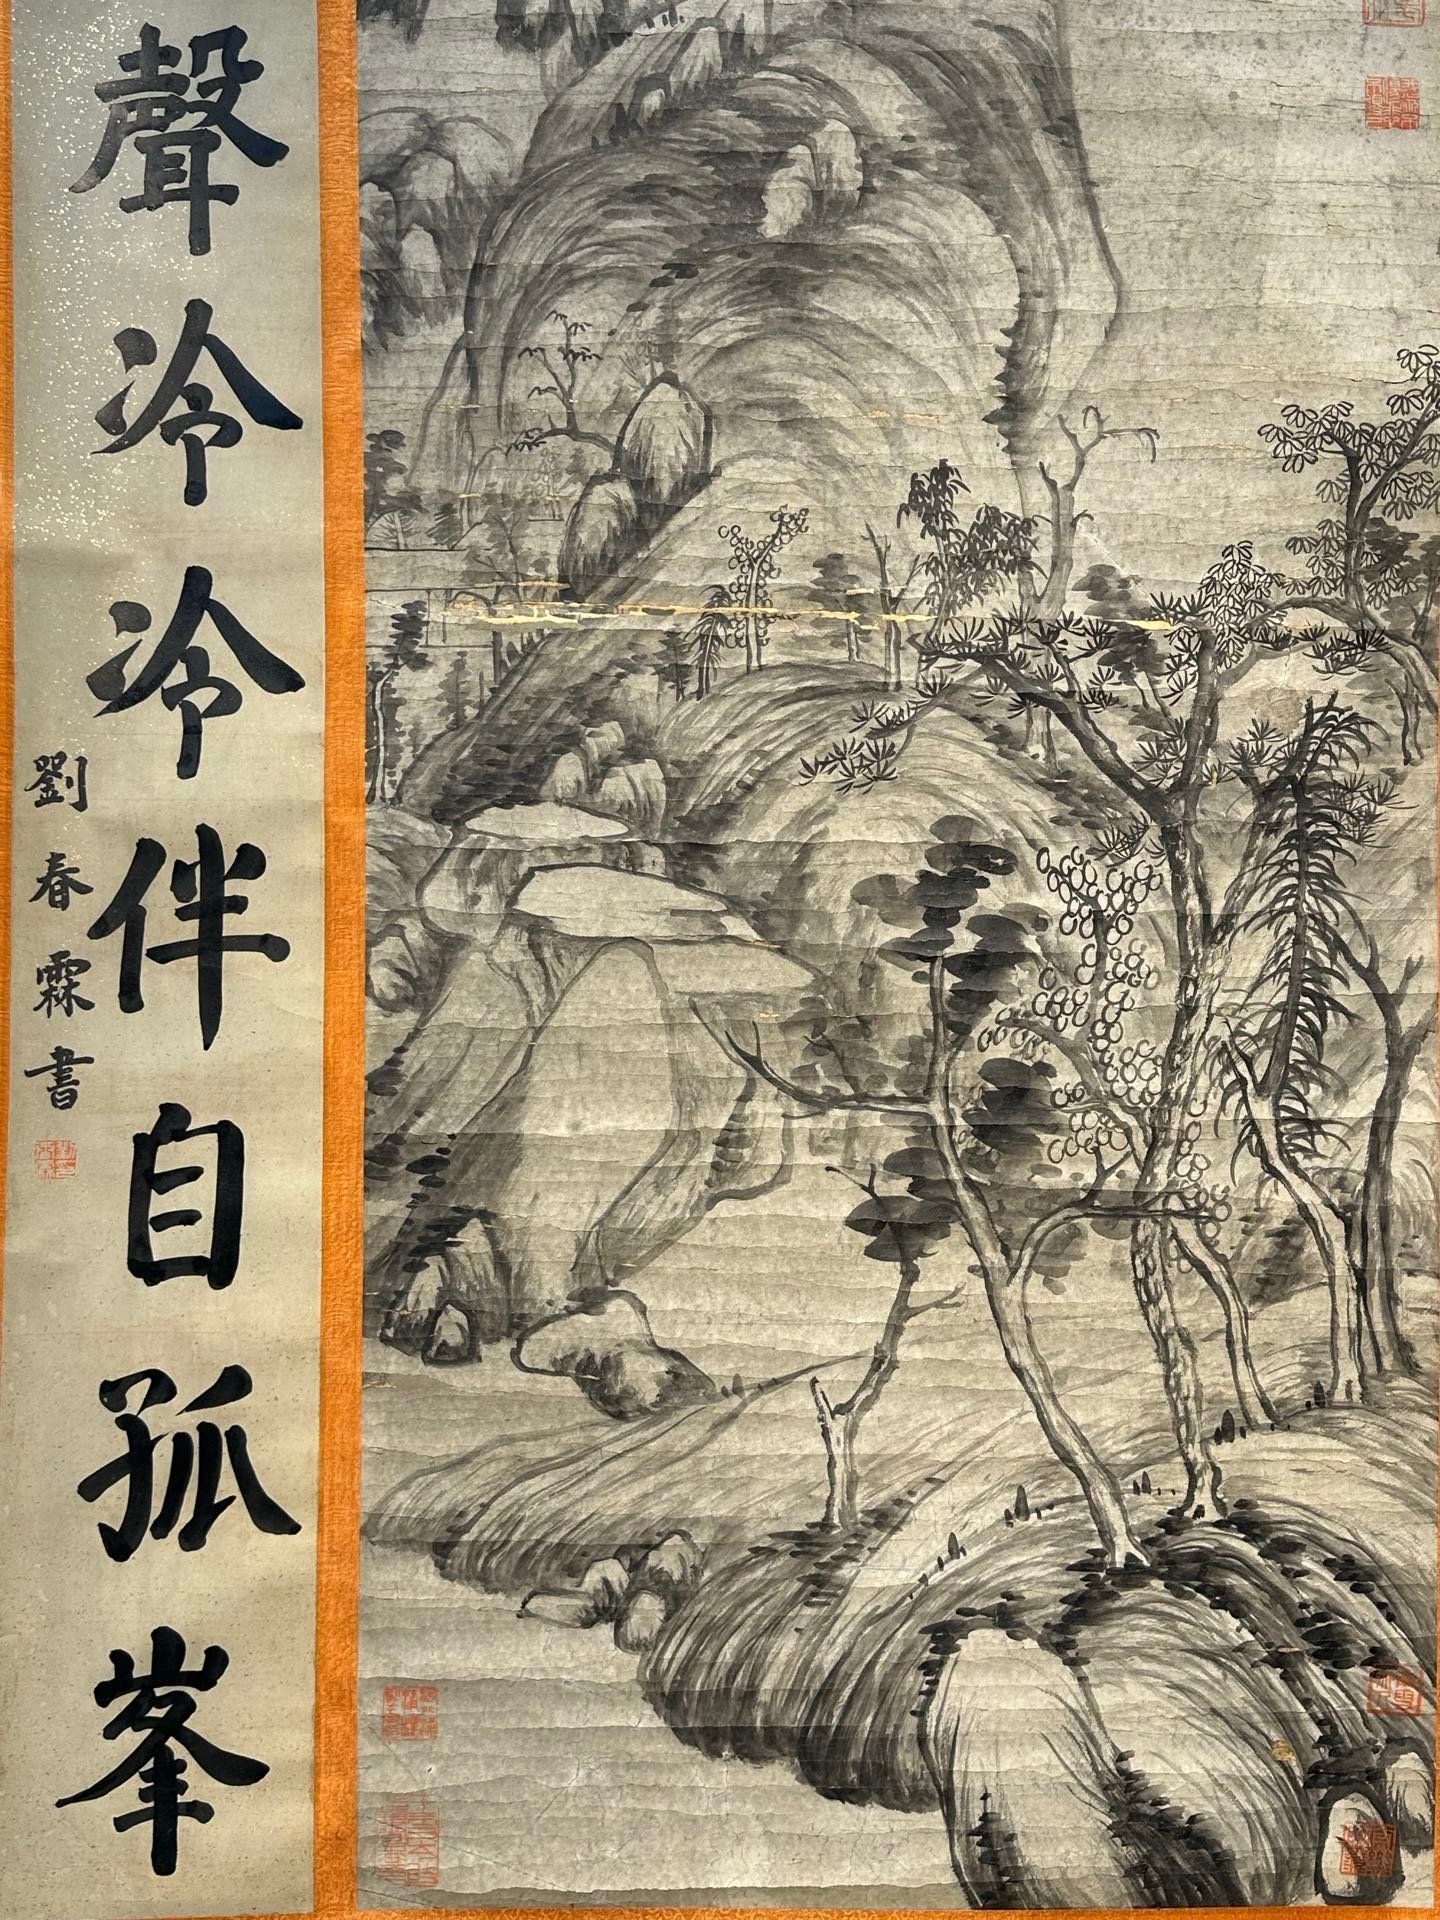 聲冷冷伴自孤峯
劉春霖書